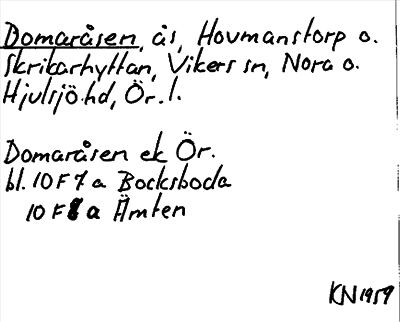 Domaråsen, ås, Hovmanstorp o.
Skrikarhyttan, Vikers sn, Nora o.
Hjulsjö hd, Ör. l.
Domaråsen ek Ör.
bl. 10 F 7 a Bocksboda
10 F 8 a Ämten
KN 1959